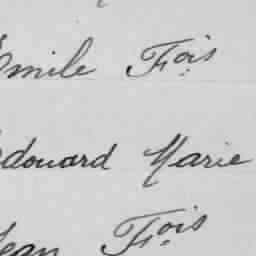 Emile Fois
Edouard Marie
Jean Fois